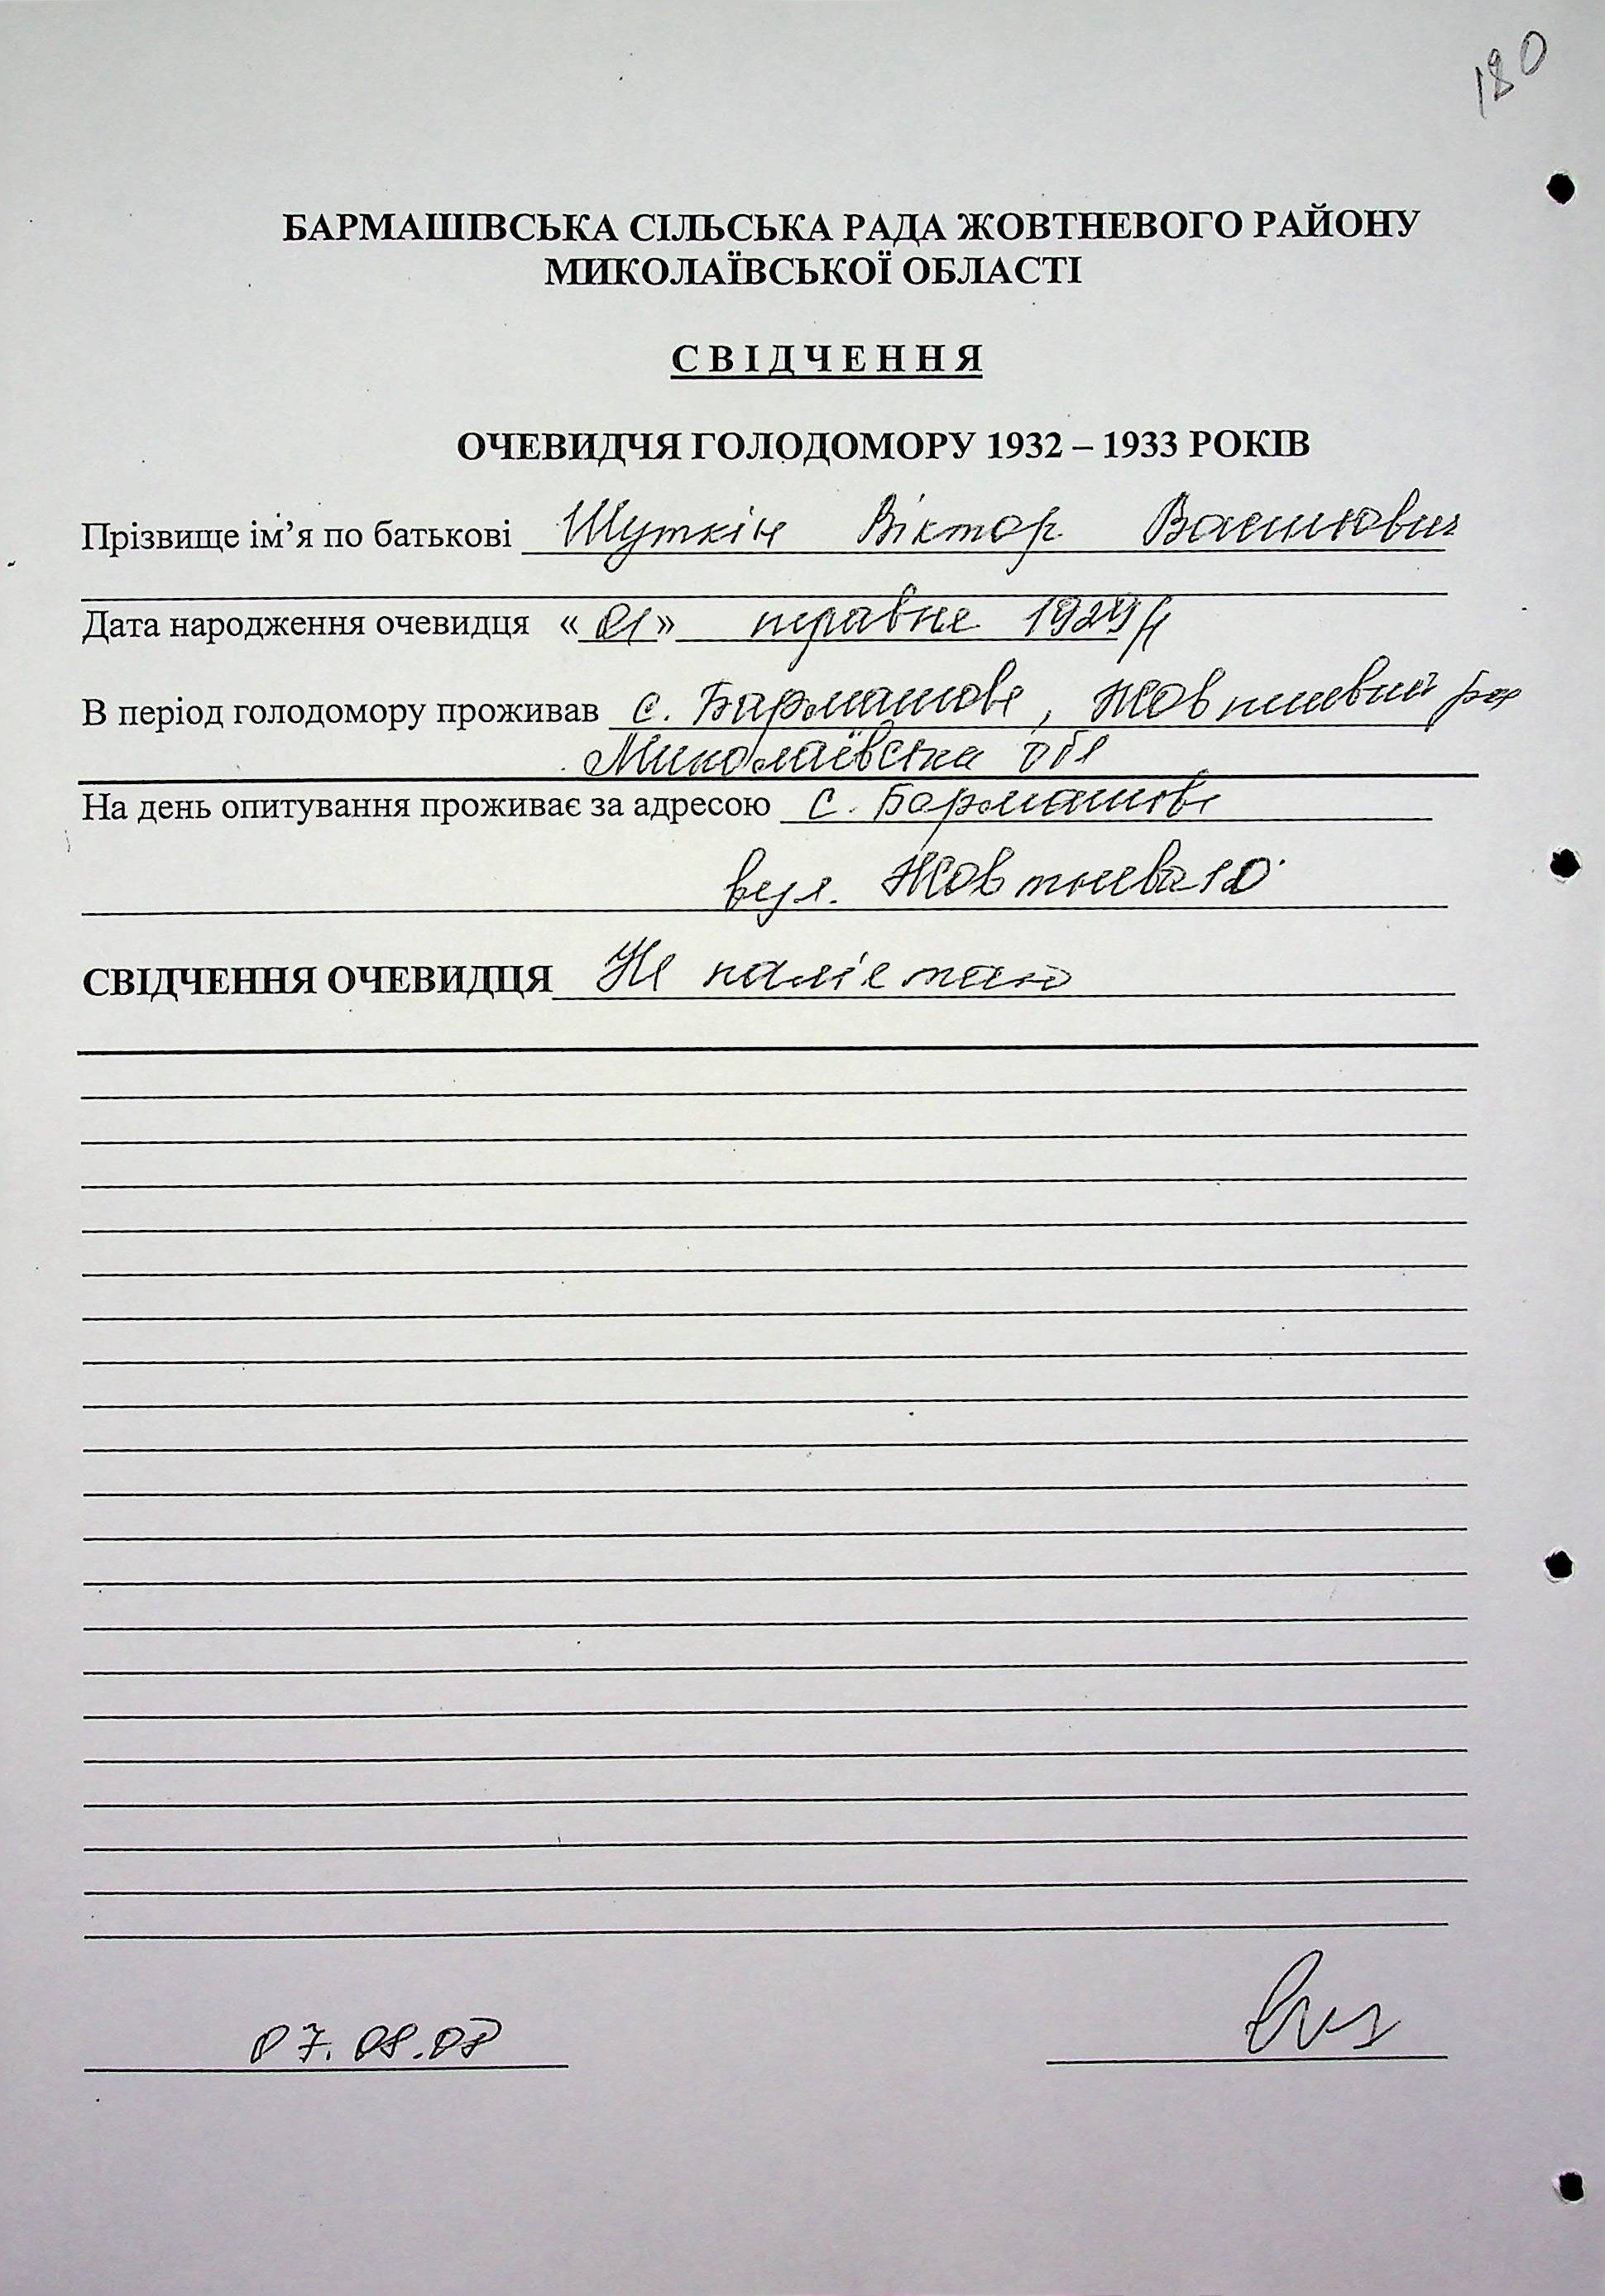 180
БАРМАШІВСЬКА СІЛЬСЬКА РАДА ЖОВТНЕВОГО РАЙОНУ
МИКОЛАЇВСЬКОЇ ОБЛАСТІ
СВІДЧЕННЯ
ОЧЕВИДЧЯ ГОЛОДОМОРУ 1932 – 1933 РОКІВ
Прізвище ім’я по батькові Шуткін Віктор Васильович
Дата народження очевидця «01» травня
В період голодомору проживав с. Бармашове, Жовтневий
Миколаївська обл
На день опитування проживає за адресою с. Бармашове
вул. Жовтнева 10
СВІДЧЕННЯ ОЧЕВИДЦЯ Не пам'ятаю
07.08.08